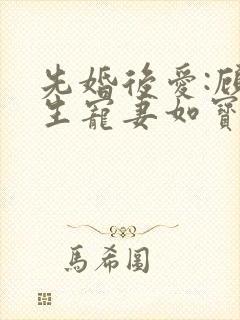 先婚後愛:顧
生寵妻如寶
馬希圖